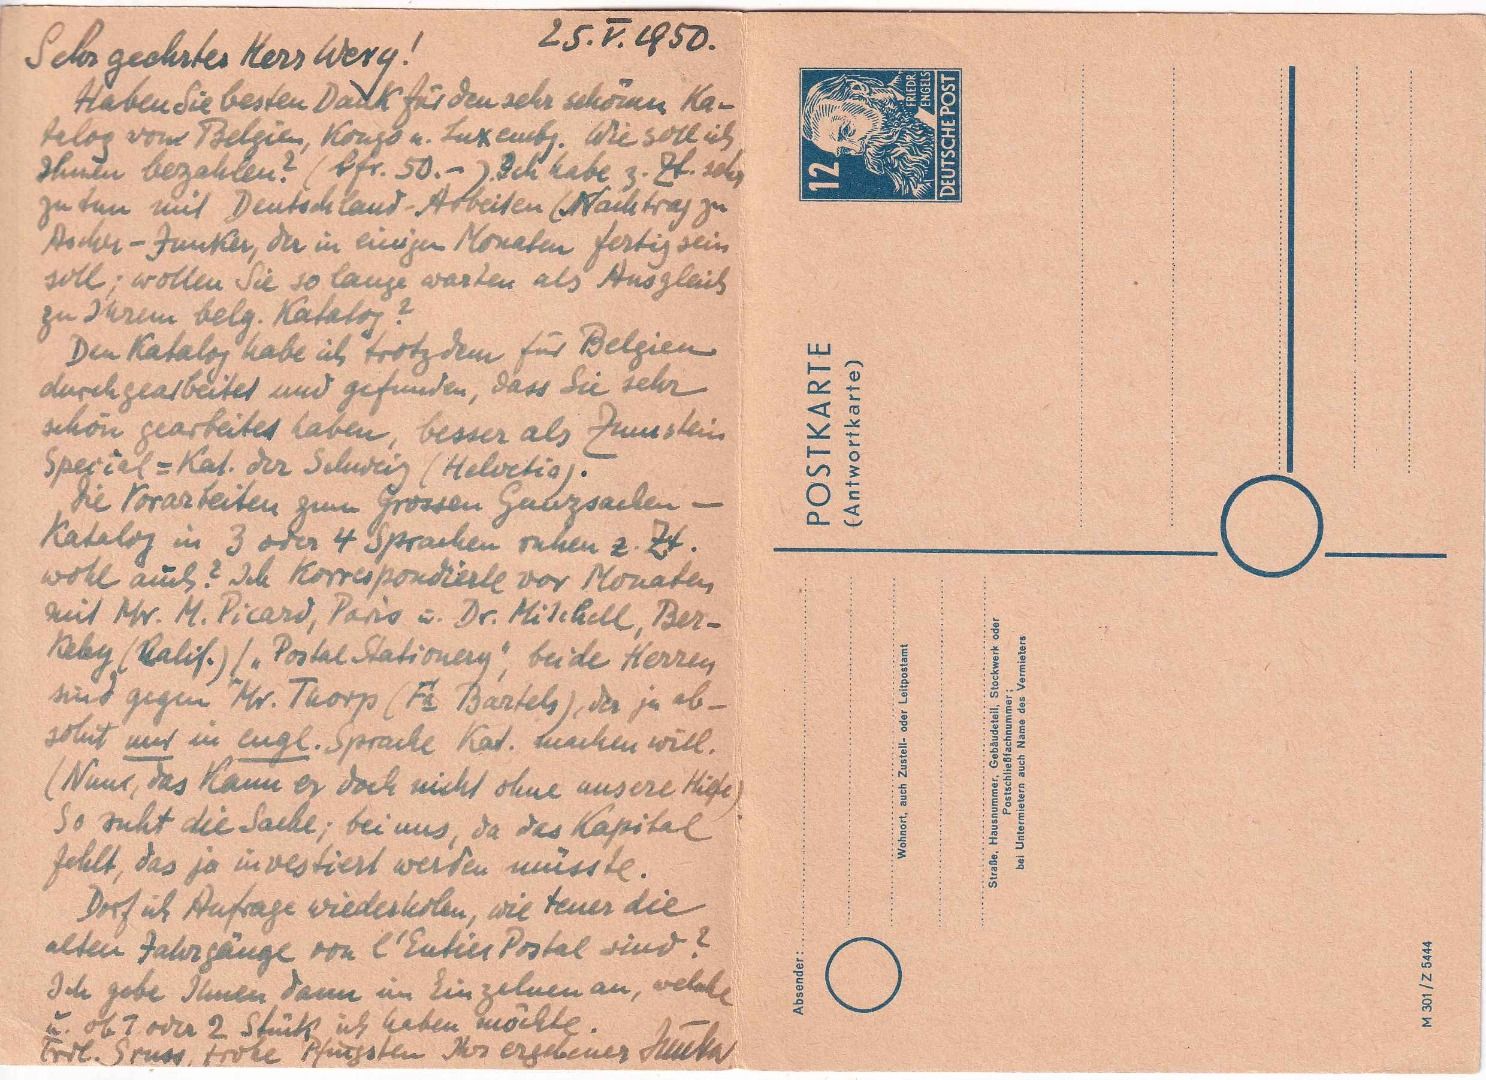 25.V.1950.
Sehr geehrter Herr Wery!
Haben Sie besten Dank für den sehr schönen Ka-
talog von Belgien, Kongo u. Luxembg. Wie soll ich
Ihnen bezahlen? (bfr. 50.-). Ich habe z. Zt. sehr
zu tun mit Deutschland-Arbeiten (Nachtrag zu
Ascher-Junker, der in einigen Monaten fertig sein
soll; wollen Sie so lange warten als Ausgleich
zu Ihrem belg. Katalog?
Den Katalog habe ich trotzdem für Belgien
durchgearbeitet und gefunden, dass Sie sehr
schön gearbeitet haben, besser als Zumstein
Special=Kat. der Schweiz (Helvetia).
Die Vorarbeiten zum Grossen Ganzsachen-
Katalog in 3 oder 4 Sprachen ruhen z. Zt.
wohl auch? Ich korrespondierte vor Monaten
mit Mr. M. Picard, Paris u. Dr. Mitchell, Ber-
keley (Kalif.) („Postal Stationery", beide Herren
sind gegen Mr. Thorp (Fa Bartels), der ja ab-
solut nur in engl. Sprache Kat. machen will.
(Nun, das kann er doch nicht ohne unsere Hilfe)
So ruht die Sache; bei uns, da das Kapital
fehlt, das ja investiert werden müsste.
Darf ich Anfrage wiederholen, wie teuer die
alten Jahrgänge von l'Entier Postal sind?
Ich gebe Ihnen dann im Einzelnen an, welche
u. ob 1 oder 2 Stück ich haben möchte.
Frdl. Gruss, frohe Pfingsten Ihr ergebener Junker
12
FRIEDR.
ENGELS
DEUTSCHE POST
POSTKARTE
(Antwortkarte)
Absender:
Wohnort, auch Zustell- oder Leitpostamt
Straße, Hausnummer, Gebäudeteil, Stockwerk oder
Postschließfachnummer;
bei Untermietern auch Name des Vermieters
M 301 / Z 5444